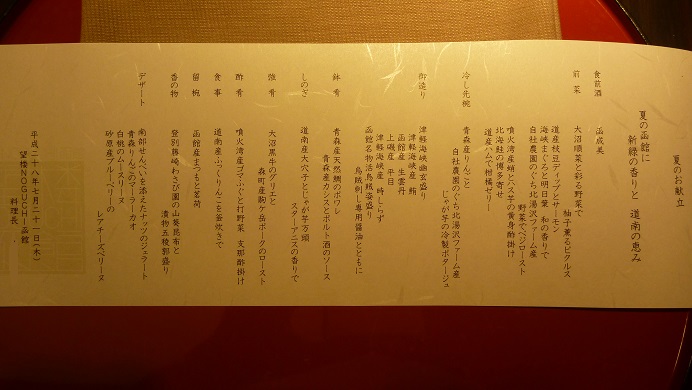 夏のお献立
夏の函館に
新緑の香りと 道南の恵み
食前酒
函成美
前菜
大沼順菜と彩る野菜で
柚子薫るピクルス
道産枝豆ディップとサーモン
海峡まぐろと明日葉 和の香りで
自社農園のぐち北湯沢ファーム産
野菜でベジロースト
噴火湾産蛸とハス芋の黄身酢掛け
北海鮭の博多寄せ
道産ハムで柑橘ゼリー
冷し先椀
青森産りんごと
自社農園のぐち北湯沢ファーム産
じゃが芋の冷製ポタージュ
御造り
津軽海峡幽玄盛り
津軽海峡産 鮪
函館産 生雲丹
上磯産 平目
津軽海峡産 時しらず
函館名物活烏賊姿盛り
烏賊刺し専用醤油とともに
鉢肴
青森産天然鯛のポワレ
青森産カシスとポルト酒のソース
しのぎ
道南産大穴子とじゃが芋万頭
スターアニスの香りで
強肴
大沼黒牛のグリエと
森町産駒ケ岳ポークのロースト
酢肴
噴火湾産ゴマふぐと打野菜 支那酢掛け
食事
道南産ふっくりんこを釜炊きで
留椀
函館産まつもと茗荷
香の物
登別藤崎わさび園の山葵昆布と
漬物五稜郭盛り
デザート
南部せんべいを添えたナッツのジェラート
青森りんごのマーラーカオ
白桃のムースリーヌ
砂原産ブルーベリーの
レアチーズベリーヌ
平成二十八年七月二十一日(木)
望楼NOGUCHI函館
料理長